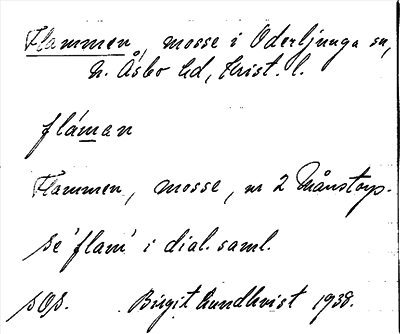 Flammen, mosse i Oderljunga sn,
N. Åsbo hd, Krist. l.
flá́man
Flammen, mosse, nr 2 Månstorp.
se 'flam' i dial. saml.
sOs. Birgit Lundkvist 1938.